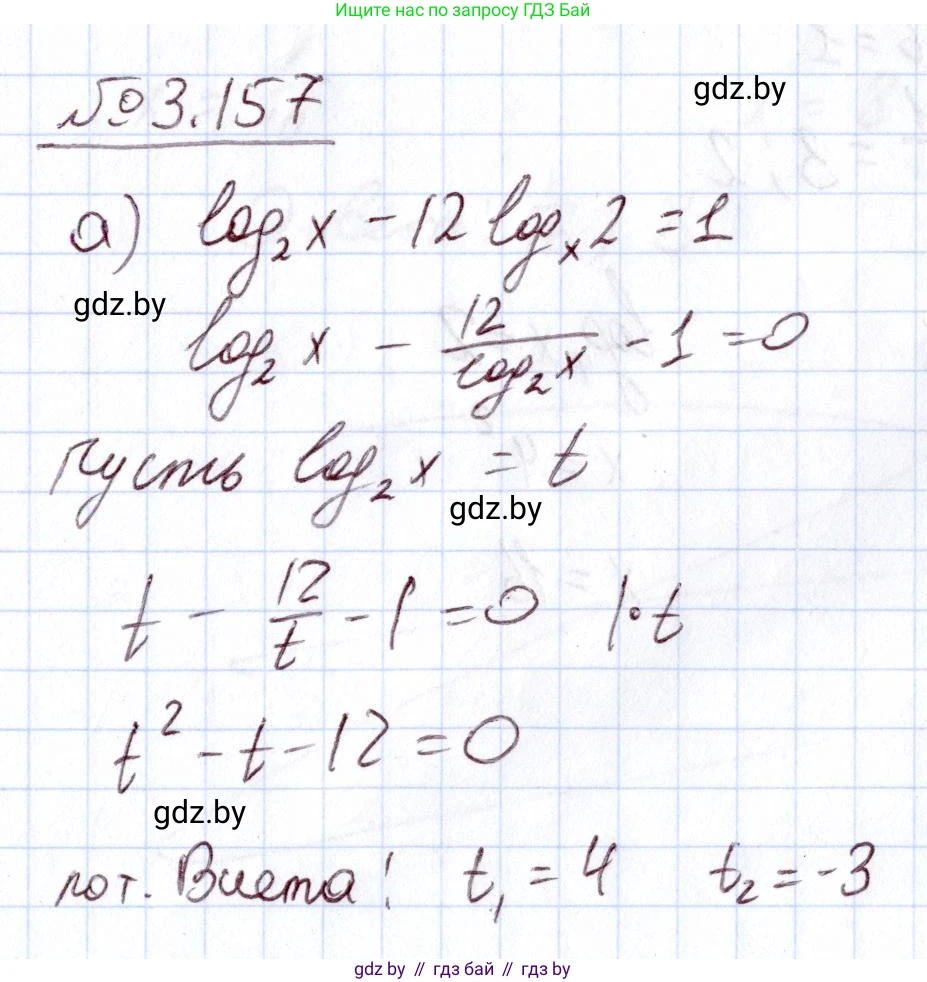 Ищите нас по запросу ГДЗ Бай
№3.157
gdz.by
а) log₂x - 12 logₓ2 = 1
gdz.by
log₂x - 12/log₂x - 1 = 0
Пусть log₂x = t
gdz.by
t - 12/t - 1 = 0 |·t
t² - t - 12 = 0
gdz.by
по т. Виета: t₁ = 4 t₂ = -3
gdz.by // гдз бай // гдз.by